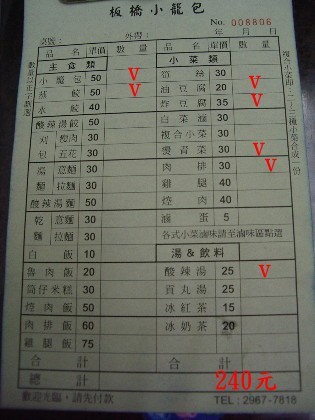 板橋小籠包
No. 008806
桌號: 外帶: 年 月 日
品名 單價 數量 品名 單價 數量
主食類 小菜類
小籠包 50 V 筍絲 30
蒸餃 50 V 油豆腐 20 V
水餃 40 炸豆腐 35 V
酸辣湯餃 50 白菜滷 30
刈瘦肉 30 複合小菜 30
包五花 30 燙青菜 30 V
湯意麵 30 肉排 30 V
麵拉麵 30 雞腿 40
酸辣湯麵 50 燒肉 40
乾意麵 30 滷蛋 5
麵拉麵 30 各式小菜滷味請至滷味區點選
白飯 10 湯&飲料
魯肉飯 20 酸辣湯 25 V
筒仔米糕 30 貢丸湯 25
燒肉飯 50 冰紅茶 15
肉排飯 60 冰奶茶 20
雞腿飯 75
合計 合計
總計 240元
歡迎光臨,請先付款 TEL: 2967-7818